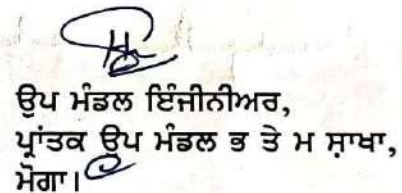 ਉਪ ਮੰਡਲ ਇੰਜੀਨੀਅਰ,
ਪ੍ਰਾਂਤਕ ਉਪ ਮੰਡਲ ਭ ਤੇ ਮ ਸ਼ਾਖਾ,
ਮੋਗਾ।